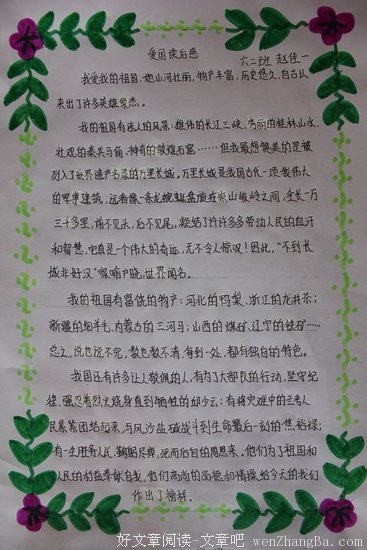 爱国读后感
六二班 赵佳一
我爱我的祖国,她山河壮丽,物产丰富,历史悠久,自古以
来出了许多英雄豪杰。
我的祖国有迷人的风景:雄伟的长江三峡,秀丽的桂林山水,
壮观的秦兵马俑,神奇的敦煌石窟……但我最想赞美的是被
列入了世界遗产名录的万里长城,万里长城是我国古代一项伟大
的军事建筑,远看像一条龙蜿蜒盘旋在崇山峻岭之间,全长一万
三千多里,前不见头,后不见尾,凝结了许许多多劳动人民的血汗
和智慧,它真是一个伟大的奇迹,无不令人惊叹!因此,“不到长
城非好汉”家喻户晓,世界闻名。
我的祖国有富饶的物产:河北的鸭梨,浙江的龙井茶;
新疆的细羊毛,内蒙古的三河马;山西的煤矿,辽宁的铁矿……
总之,说也说不完,数也数不清,每到一处,都有独自的特色。
我国还有许多让人敬佩的人,有为了大部队的行动,坚守纪
律,强忍着烈火烧身直到牺牲的邱少云;有将灾难中的兰考人
民紧紧团结起来,与风沙盐碱战斗到生命最后一刻的焦裕禄;
有一生服务人民,鞠躬尽瘁,死而后已的周恩来。他们为了祖国和
人民的利益奉献自我,他们高尚的品德和情操给今天的我们
作出了榜样。
好文章阅读-文章吧 wenZhangBa.com